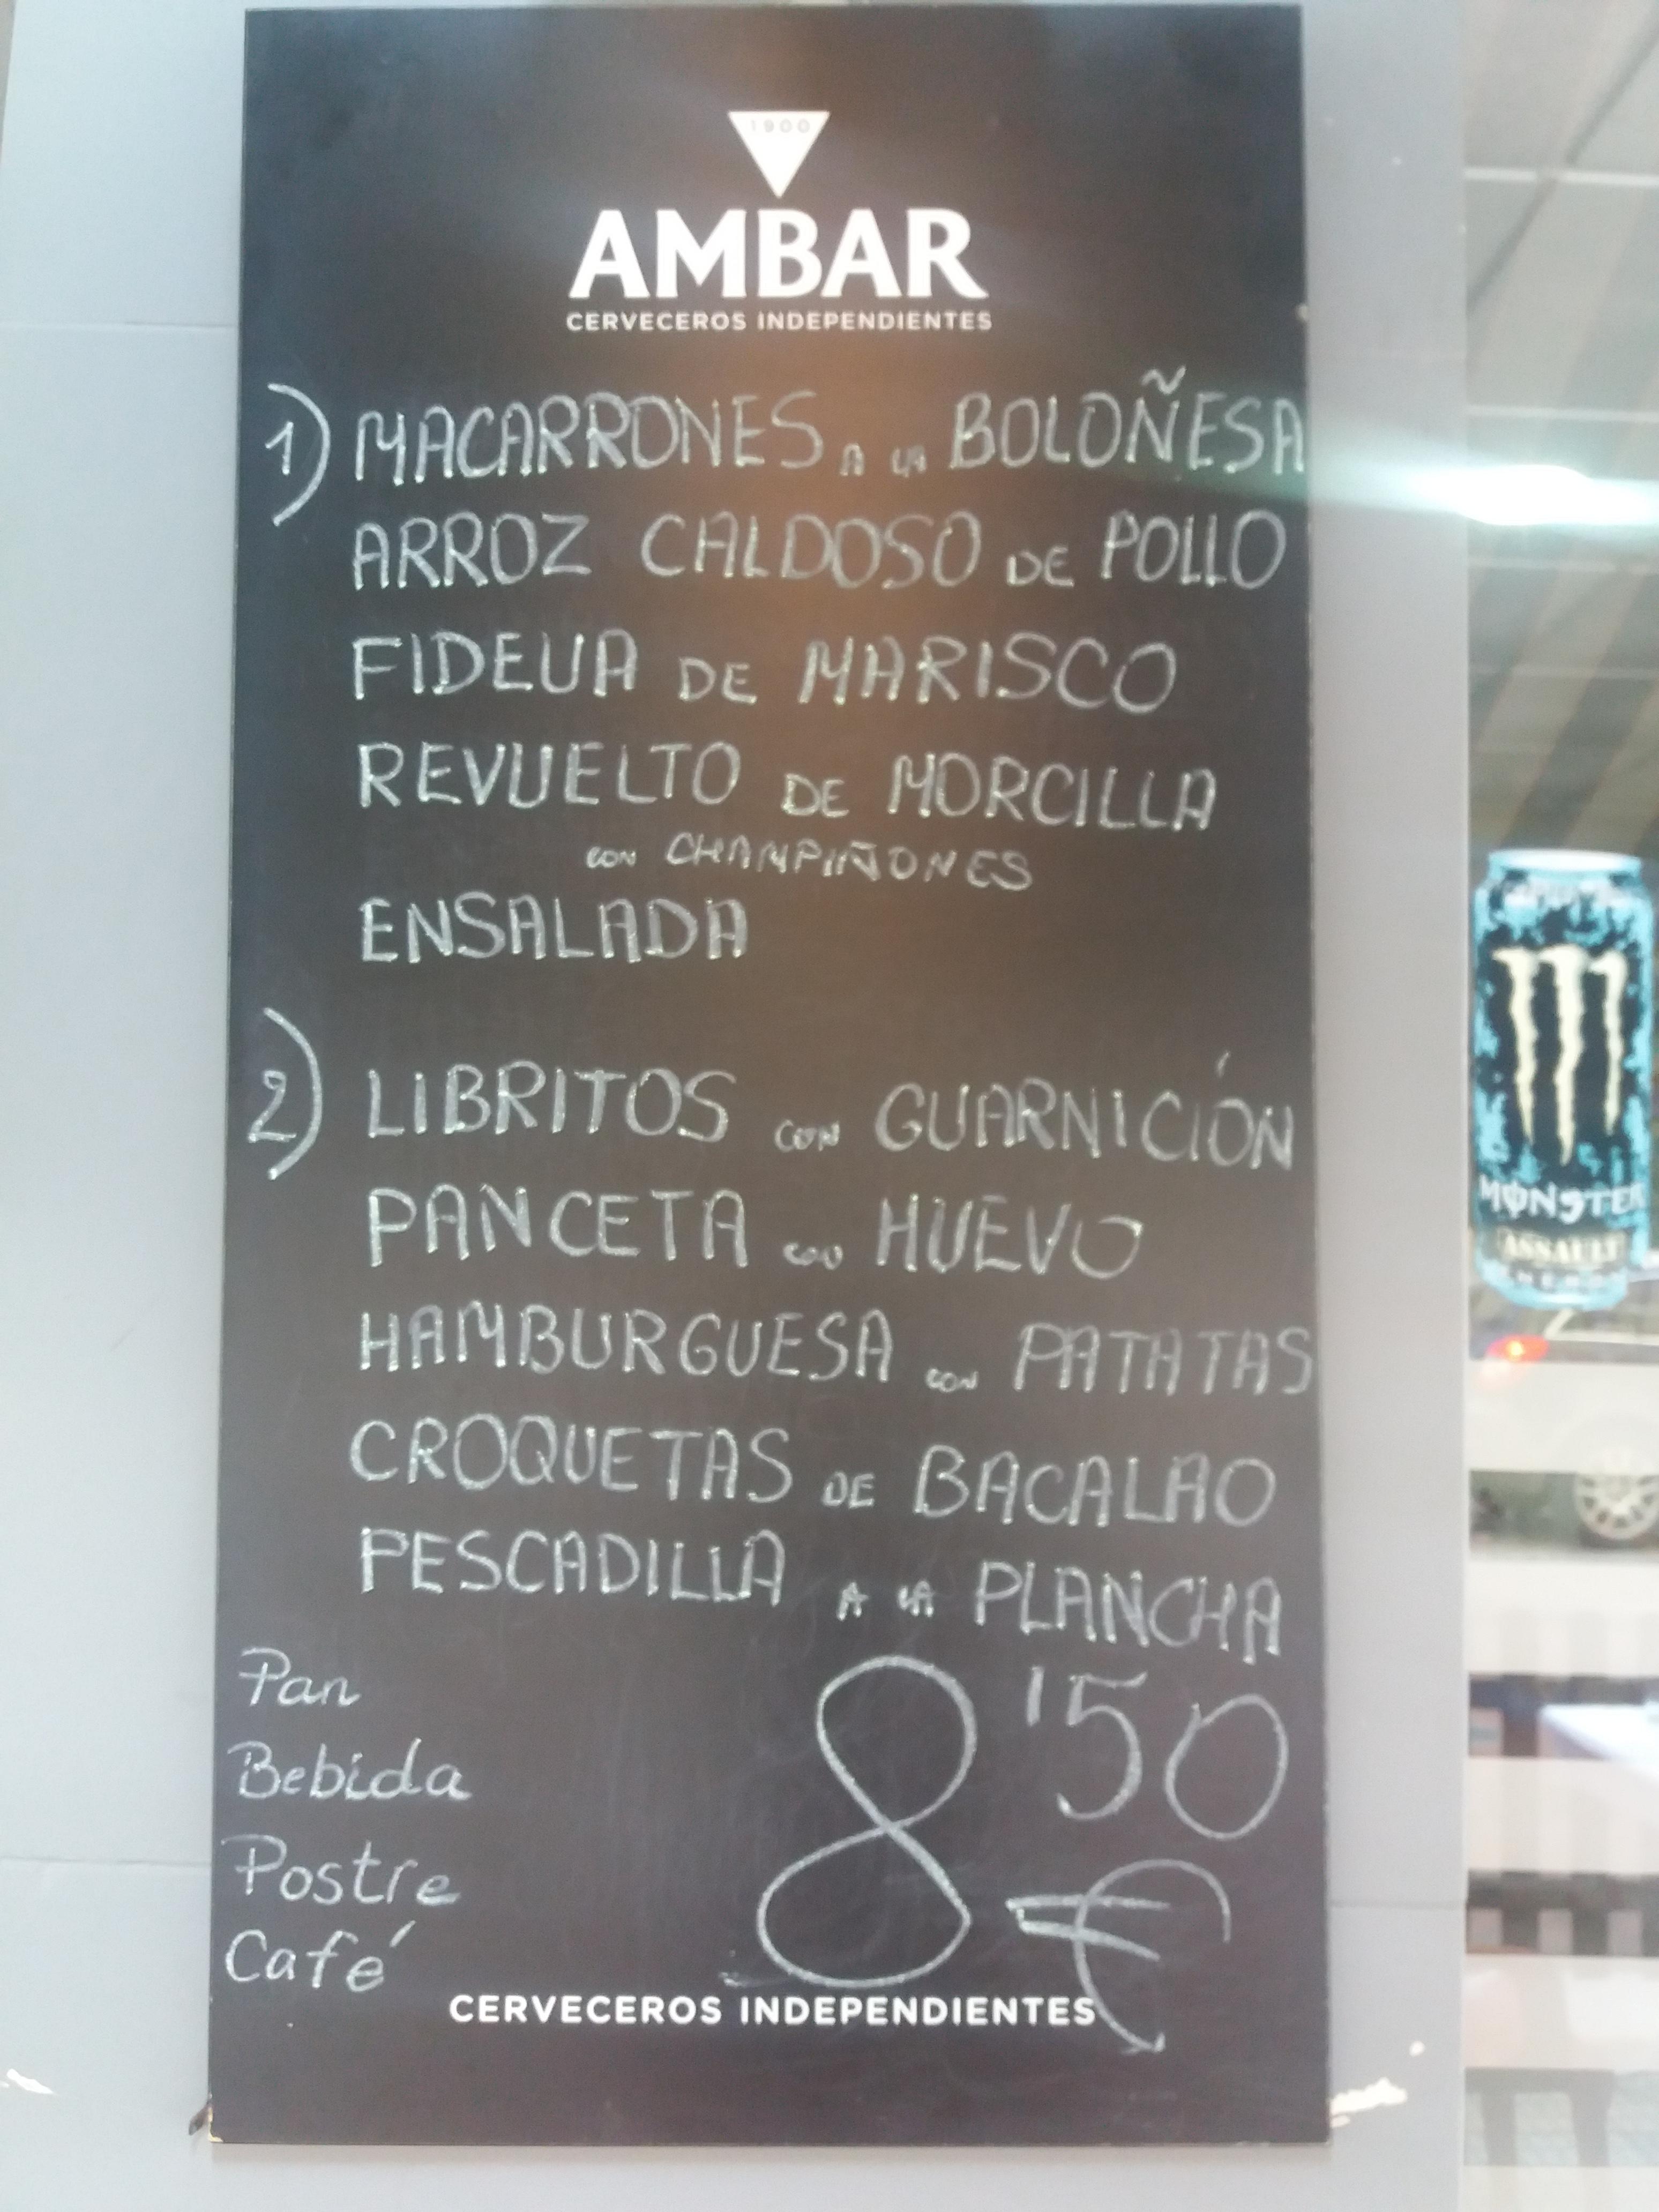 1900
AMBAR
CERVECEROS INDEPENDIENTES
1) MACARRONES A LA BOLOÑESA
ARROZ CALDOSO DE POLLO
FIDEUA DE MARISCO
REVUELTO DE MORCILLA
CON CHAMPIÑONES
ENSALADA
2) LIBRITOS CON GUARNICIÓN
PANCETA CON HUEVO
HAMBURGUESA CON PATATAS
CROQUETAS DE BACALAO
PESCADILLA A LA PLANCHA
Pan
Bebida
Postre
Café
8'50
€
CERVECEROS INDEPENDIENTES
MONSTER
ASSAULT
ENERGY